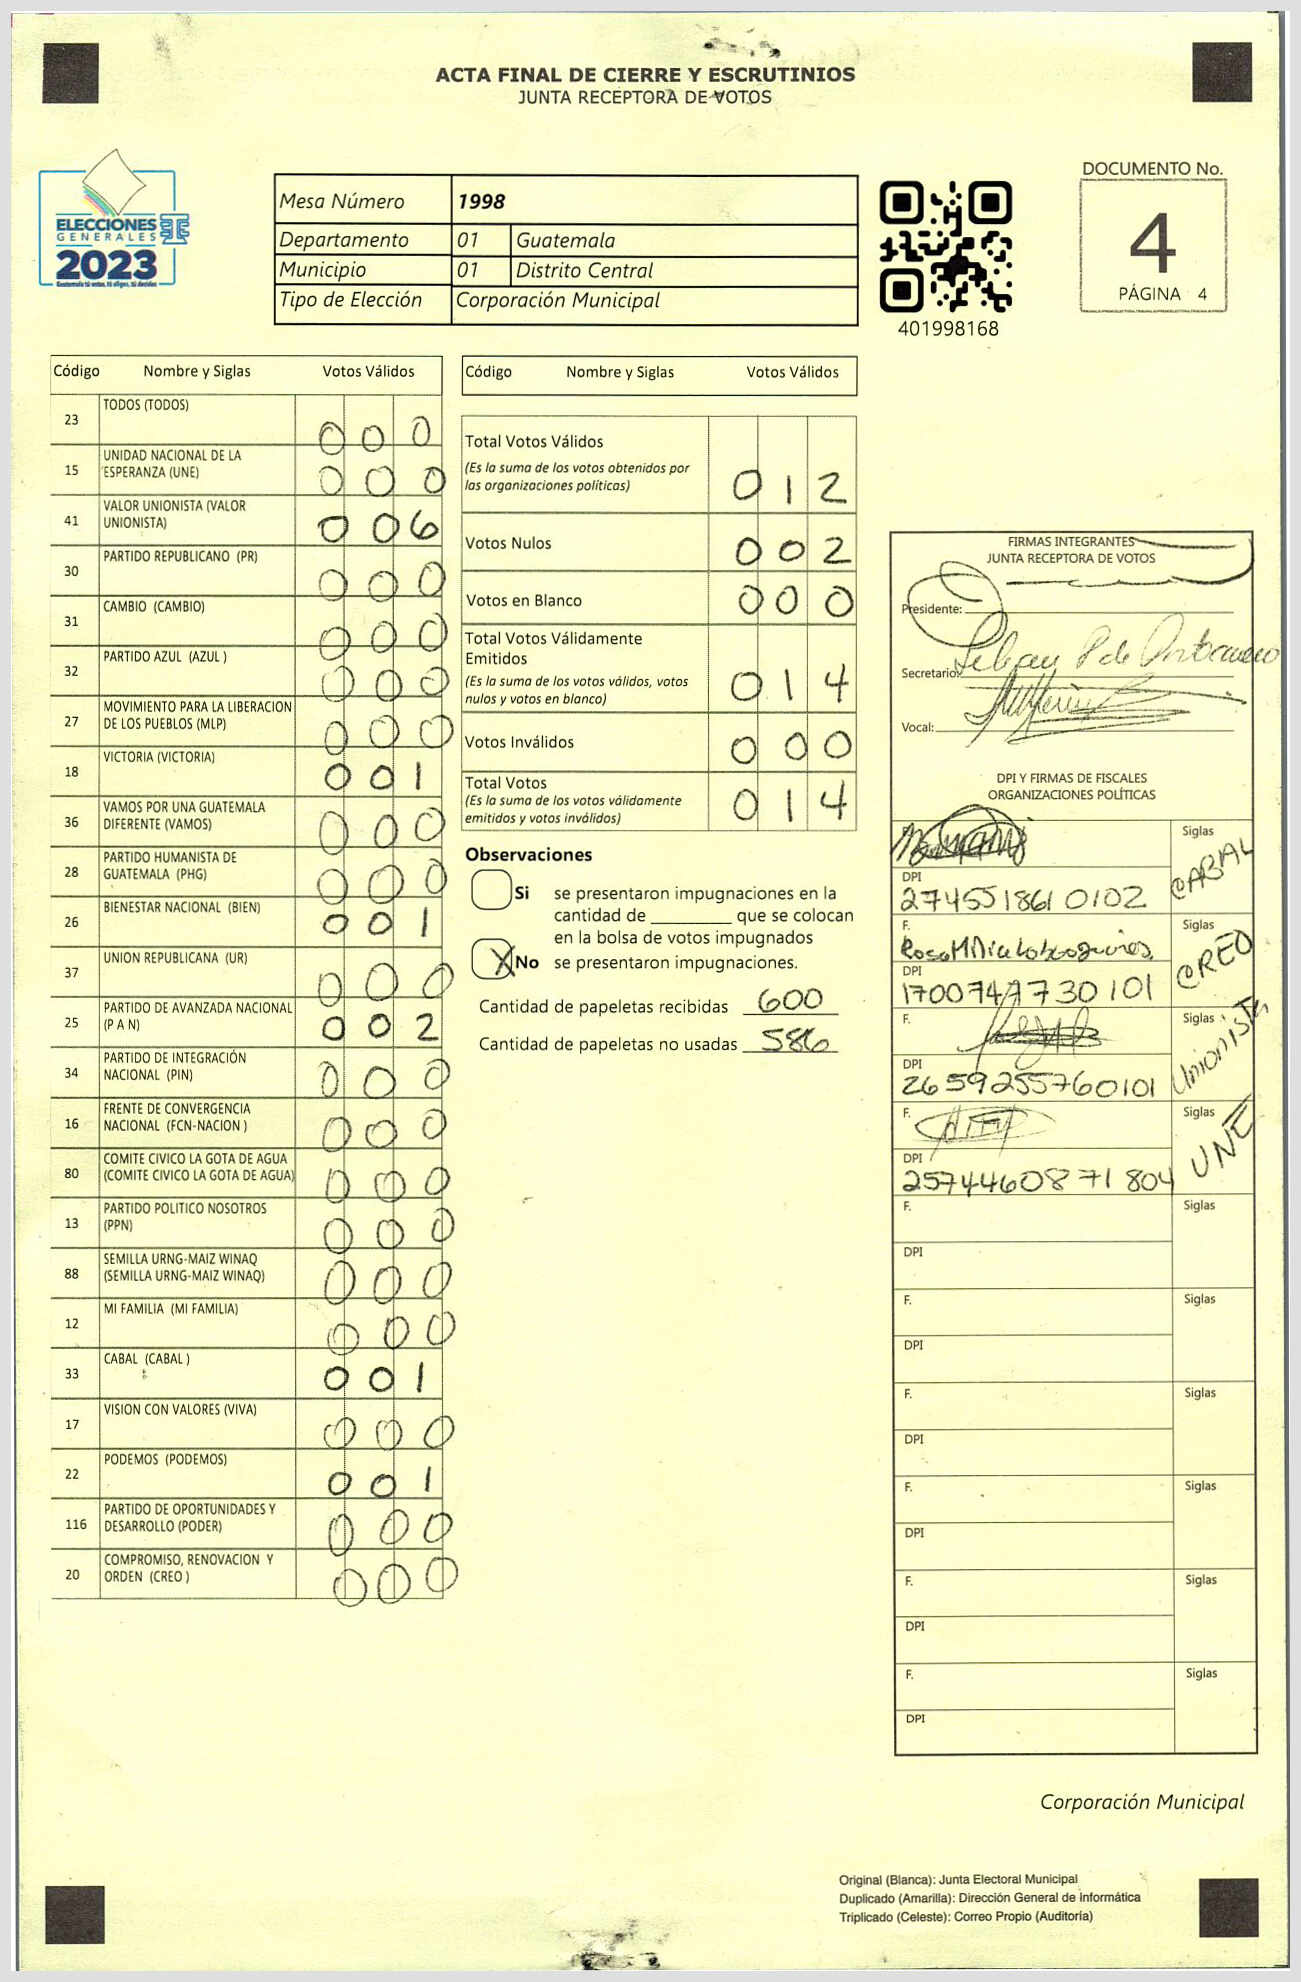 ACTA FINAL DE CIERRE Y ESCRUTINIOS
JUNTA RECEPTORA DE VOTOS
ELECCIONES
GENERALES
2023
Guatemala tú votas, tú eliges, tú decides
Mesa Número 1998
Departamento 01 Guatemala
Municipio 01 Distrito Central
Tipo de Elección Corporación Municipal
401998168
DOCUMENTO No.
4
PÁGINA 4
Código Nombre y Siglas Votos Válidos
23 TODOS (TODOS) 0 0 0
15 UNIDAD NACIONAL DE LA ESPERANZA (UNE) 0 0 0
41 VALOR UNIONISTA (VALOR UNIONISTA) 0 0 6
30 PARTIDO REPUBLICANO (PR) 0 0 0
31 CAMBIO (CAMBIO) 0 0 0
32 PARTIDO AZUL (AZUL ) 0 0 0
27 MOVIMIENTO PARA LA LIBERACION DE LOS PUEBLOS (MLP) 0 0 0
18 VICTORIA (VICTORIA) 0 0 1
36 VAMOS POR UNA GUATEMALA DIFERENTE (VAMOS) 0 0 0
28 PARTIDO HUMANISTA DE GUATEMALA (PHG) 0 0 0
26 BIENESTAR NACIONAL (BIEN) 0 0 1
37 UNION REPUBLICANA (UR) 0 0 0
25 PARTIDO DE AVANZADA NACIONAL (P A N) 0 0 2
34 PARTIDO DE INTEGRACIÓN NACIONAL (PIN) 0 0 0
16 FRENTE DE CONVERGENCIA NACIONAL (FCN-NACION ) 0 0 0
80 COMITE CIVICO LA GOTA DE AGUA (COMITE CIVICO LA GOTA DE AGUA) 0 0 0
13 PARTIDO POLITICO NOSOTROS (PPN) 0 0 0
88 SEMILLA URNG-MAIZ WINAQ (SEMILLA URNG-MAIZ WINAQ) 0 0 0
12 MI FAMILIA (MI FAMILIA) 0 0 0
33 CABAL (CABAL ) 0 0 1
17 VISION CON VALORES (VIVA) 0 0 0
22 PODEMOS (PODEMOS) 0 0 1
116 PARTIDO DE OPORTUNIDADES Y DESARROLLO (PODER) 0 0 0
20 COMPROMISO, RENOVACION Y ORDEN (CREO ) 0 0 0
Código Nombre y Siglas Votos Válidos
Total Votos Válidos
(Es la suma de los votos obtenidos por
las organizaciones políticas) 0 1 2
Votos Nulos 0 0 2
Votos en Blanco 0 0 0
Total Votos Válidamente
Emitidos
(Es la suma de los votos válidos, votos
nulos y votos en blanco) 0 1 4
Votos Inválidos 0 0 0
Total Votos
(Es la suma de los votos válidamente
emitidos y votos inválidos) 0 1 4
Observaciones
Si se presentaron impugnaciones en la
cantidad de ________ que se colocan
en la bolsa de votos impugnados
X No se presentaron impugnaciones.
Cantidad de papeletas recibidas 600
Cantidad de papeletas no usadas 586
FIRMAS INTEGRANTES
JUNTA RECEPTORA DE VOTOS
Presidente:
Secretario:
Vocal:
DPI Y FIRMAS DE FISCALES
ORGANIZACIONES POLÍTICAS
Siglas CABAL
DPI
2745518610102
F. Siglas CREO
DPI
1700747730101
F. Siglas Unionista
DPI
2659255760101
F. Siglas UNE
DPI
2574460871804
F. Siglas
DPI
F. Siglas
DPI
F. Siglas
DPI
F. Siglas
DPI
F. Siglas
DPI
F. Siglas
DPI
Corporación Municipal
Original (Blanca): Junta Electoral Municipal
Duplicado (Amarilla): Dirección General de Informática
Triplicado (Celeste): Correo Propio (Auditoría)